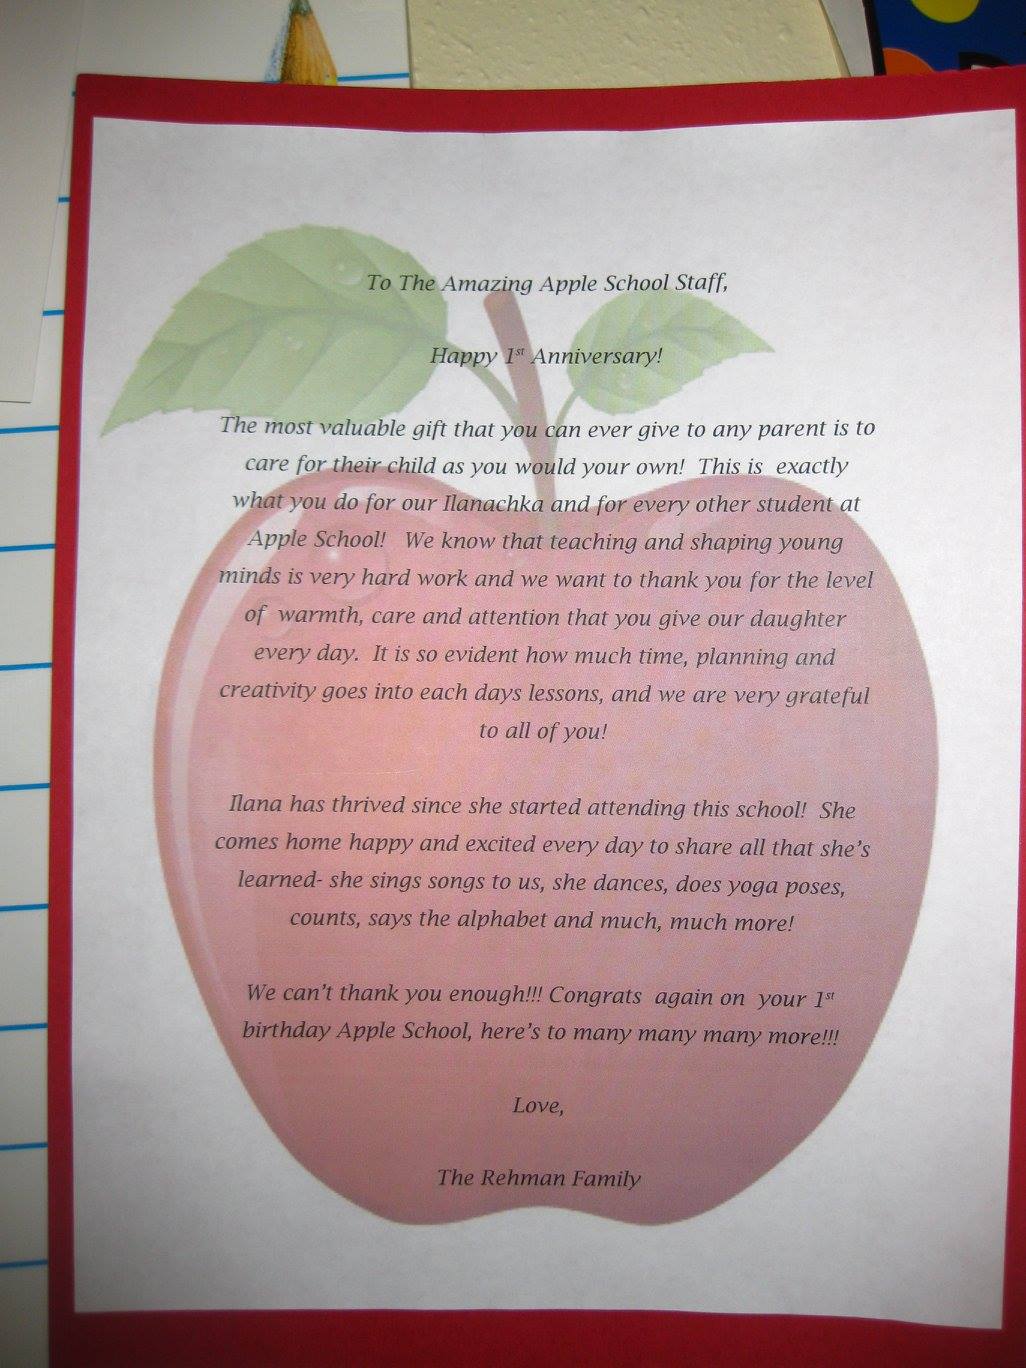 To The Amazing Apple School Staff,
Happy 1st Anniversary!
The most valuable gift that you can ever give to any parent is to
care for their child as you would your own!  This is  exactly
what you do for our Ilanachka and for every other student at
Apple School!   We know that teaching and shaping young
minds is very hard work and we want to thank you for the level
of  warmth, care and attention that you give our daughter
every day.  It is so evident how much time, planning and
creativity goes into each days lessons, and we are very grateful
to all of you!
Ilana has thrived since she started attending this school!  She
comes home happy and excited every day to share all that she's
learned- she sings songs to us, she dances, does yoga poses,
counts, says the alphabet and much, much more!
We can't thank you enough!!! Congrats  again on  your 1st
birthday Apple School, here's to many many many more!!!
Love,
The Rehman Family